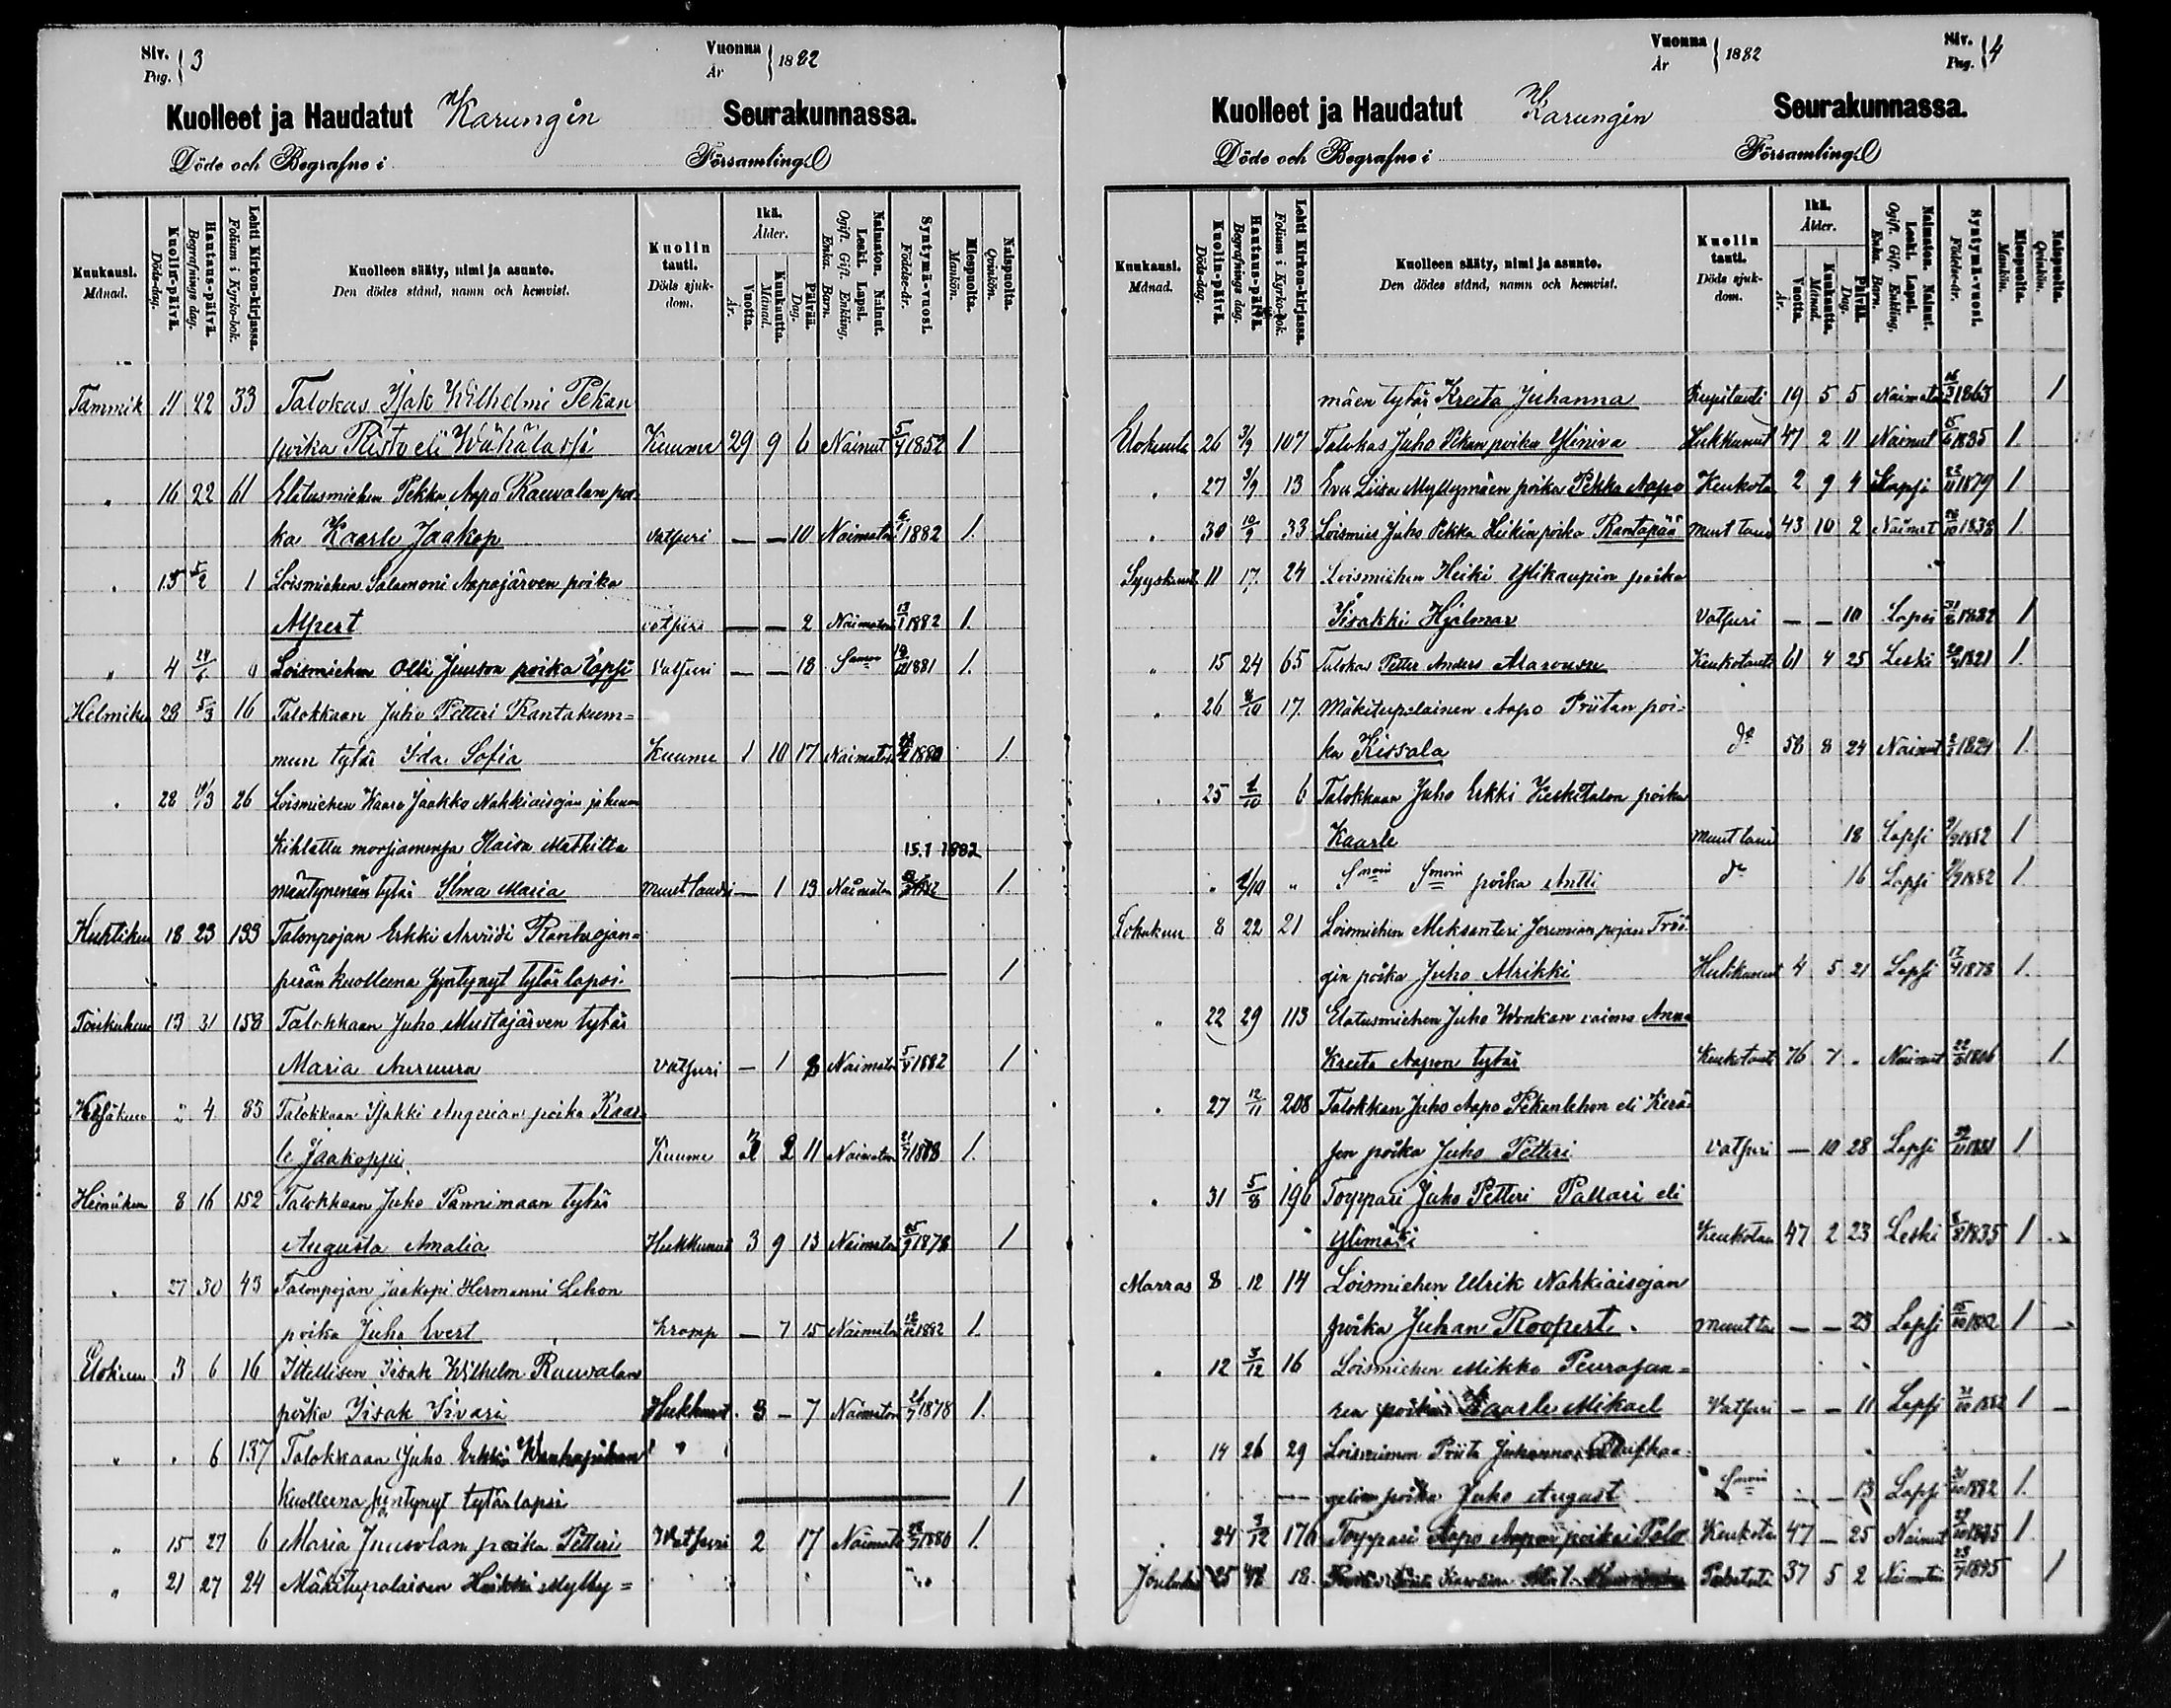 Siv. Pag. 3
Vuonna År 1882
Kuolleet ja Haudatut Karungin Seurakunnassa.
Döde och Begrafne i Församling
Kuukausi. Månad.
Kuolin-päivä. Döds-dag.
Hautaus-päivä. Begrafnings dag.
Lehti Kirkon-kirjassa. Folium i Kyrko-bok.
Kuolleen sääty, nimi ja asunto. Den dödes stånd, namn och hemvist.
Kuolin tauti. Döds sjukdom.
Ikä. Ålder.
Vuotta. År.
Kuukautta. Månad.
Päivää. Dag.
Naimaton. Nainut. Leski. Lapsi. Ogift. Gift. Enkling, Enka. Barn.
Syntymä-vuosi. Födelse-år.
Miespuolta. Mankön.
Naispuolta. Qvinkön.
Tammik 11 22 33 Talokas Isak Wilhelmi Pekan
poika Risto eli Wähälassi Kuume 29 9 6 Nainut 5/4 1852 1
" 16 22 61 Elatusmiehen Pekka Aapo Rauvalan poi
ka Kaarle Jaakop vatsuri — — 10 Naimaton 6/1 1882 1.
" 15 5/2 1 Loismiehen Salamoni Aapajärven poika
Alpert vatsuri — — 2 Naimaton 13/1 1882 1.
" 4 Loismiehen Olli Juuson poika lapsi Vatsuri — — 18 1881 1.
Helmiku 28 5/3 16 Talokkaan Juho Petteri Rantakum=
mun tytär Ida Sofia Kuume 1 10 17 Naimaton 1880 1.
" 28 /3 26 Loismiehen Kaara Jaakko Nahkiaisojan ja hänen
Kihlattu morsiamensa Maita Mathilta 15.1 1882
mäntynenän tytär Ilma Maria muut taudi — 1 13 Naimaton 1.
Huhtikuu 18 23 133 Talonpojan Erkki Arviidi Rantaojan=
perän kuolleena syntynyt tytär lapsi. 1
Toukokuu 13 31 158 Talokkaan Juho Mustajärven tytär
Maria Auruura vatsuri — 1 8 Naimaton 5/4 1882 1
Kesäkuu " 4 85 Talokkaan Isakki Angerian poika Kaar
le Jaakoppi Kuume 2 11 Naimaton 1.
Heinäkuu 8 16 152 Talokkaan Juho Pannimaan tytär
Augusta Amalia Hukkunut 3 9 13 Naimaton 25/9 1878 1
" 27 30 43 Talonpojan Jaakopi Hermanni Lehon
poika Juho Evert Kramp — 7 15 Naimaton 12/12 1882 1.
Elokuu 3 6 16 Itellisen Iisak Wilhelm Rauvalan
poika Iisak Iivari Hukkunut 3 — 7 Naimaton 26/7 1878 1.
" " 6 137 Talokkaan Juho Erkki Wanhapiham
Kuolleena syntynyt tytär lapsi 1
" 15 27 6 Maria Juusolan poika Petteri Vatsuri 2 17 Naimato 28/7 1880 1.
" 21 27 24 Mäkitupalaisen Heikki Mylly=
Vuonna År 1882
Siv. Pag. 4
Kuolleet ja Haudatut Karungin Seurakunnassa.
Döde och Begrafne i Församling
Kuukausi. Månad.
Kuolin-päivä. Döds-dag.
Hautaus-päivä. Begrafnings dag.
Lehti Kirkon-kirjassa. Folium i Kyrko-bok.
Kuolleen sääty, nimi ja asunto. Den dödes stånd, namn och hemvist.
Kuolin tauti. Döds sjukdom.
Ikä. Ålder.
Vuotta. År.
Kuukautta. Månad.
Päivää. Dag.
Naimaton. Nainut. Leski. Lapsi. Ogift. Gift. Enkling, Enka. Barn.
Syntymä-vuosi. Födelse-år.
Miespuolta. Mankön.
Naispuolta. Qvinkön.
mäen tytär Kreeta Juhanna Kupitauti 19 5 5 Naimato 16/3 1863 1
Elokuuta 26 3/9 107 Talokas Juho Pekan poika Yliniva Hukkunut 47 2 11 Nainut 1835 1.
" 27 3/9 13 Eva Liisa Myllymäen poika Pekka Aapo Keukota 2 9 4 Lapsi 23/11 1879 1
" 30 10/9 33 Loismies Juho Pekka Heikin poika Rantapää muut taud 43 10 2 Nainut 28/10 1838 1.
Syyskuut 11 17 24 Loismiehen Heiki Ylikaupin poika
Iisakki Hjalmar Vatsuri — — 10 Lapsi 31/8 1882 1
" 15 24 65 Talokas Petter Anders Alarousu Keukotauti 61 4 25 Leski 20/4 1821 1.
" 26 8/10 17. Mäkitupelainen Aapo Priitan poi-
ka Kissala do 58 8 24 Nainut 1824 1.
" 25 1/10 6 Talokkaan Juho Erkki Keskitalon poika
Kaarle muut taud 18 Lapsi /9 1882 1
" 1/10 " poika Antti do 16 Lapsi /9 1882 1
Lokakuu 8 22 21 Loismiehen Aleksanteri Jeremian pojan Frö
gin poika Juho Alrikki Hukkunut 4 5 21 Lapsi 17/4 1878 1.
" 22 29 113 Elatusmiehen Juho Wonkan vaimo Anna
Kreeta Aapon tytär Keukotaut 76 7 " Nainut 22/3 1806 1.
" 27 12/11 208 Talokkan Juho Aapo Pekanlehon eli Kerä-
sen poika Juho Petteri Vatsuri — 10 28 Lapsi 1881 1
" 31 5/8 196 Torppari Juho Petteri Pallari eli
Ylimäki Keukotau 47 2 23 Leski 8/8 1835 1
Marras 8 12 14 Loismiehen Ulrik Nahkiaisojan
poika Juhan Roopert. muut ta — — 23 Lapsi 15/10 1882 1
" 12 3/12 16 Loismiehen Mikko Peurajaa=
ren poika Kaarle Mikael Vatsuri — — 11 Lapsi 31/10 1882 1
" 14 26 29 Loisvaimon Priita Juhanna
poika Juho August — 13 Lapsi 1882 1.
" 24 3/12 176 Torppari Aapo Aapon poika Palo Keukota 47 — 25 Nainut 1835 1.
Jouluku 25 18. 37 5 2 Naimaton 1845 1